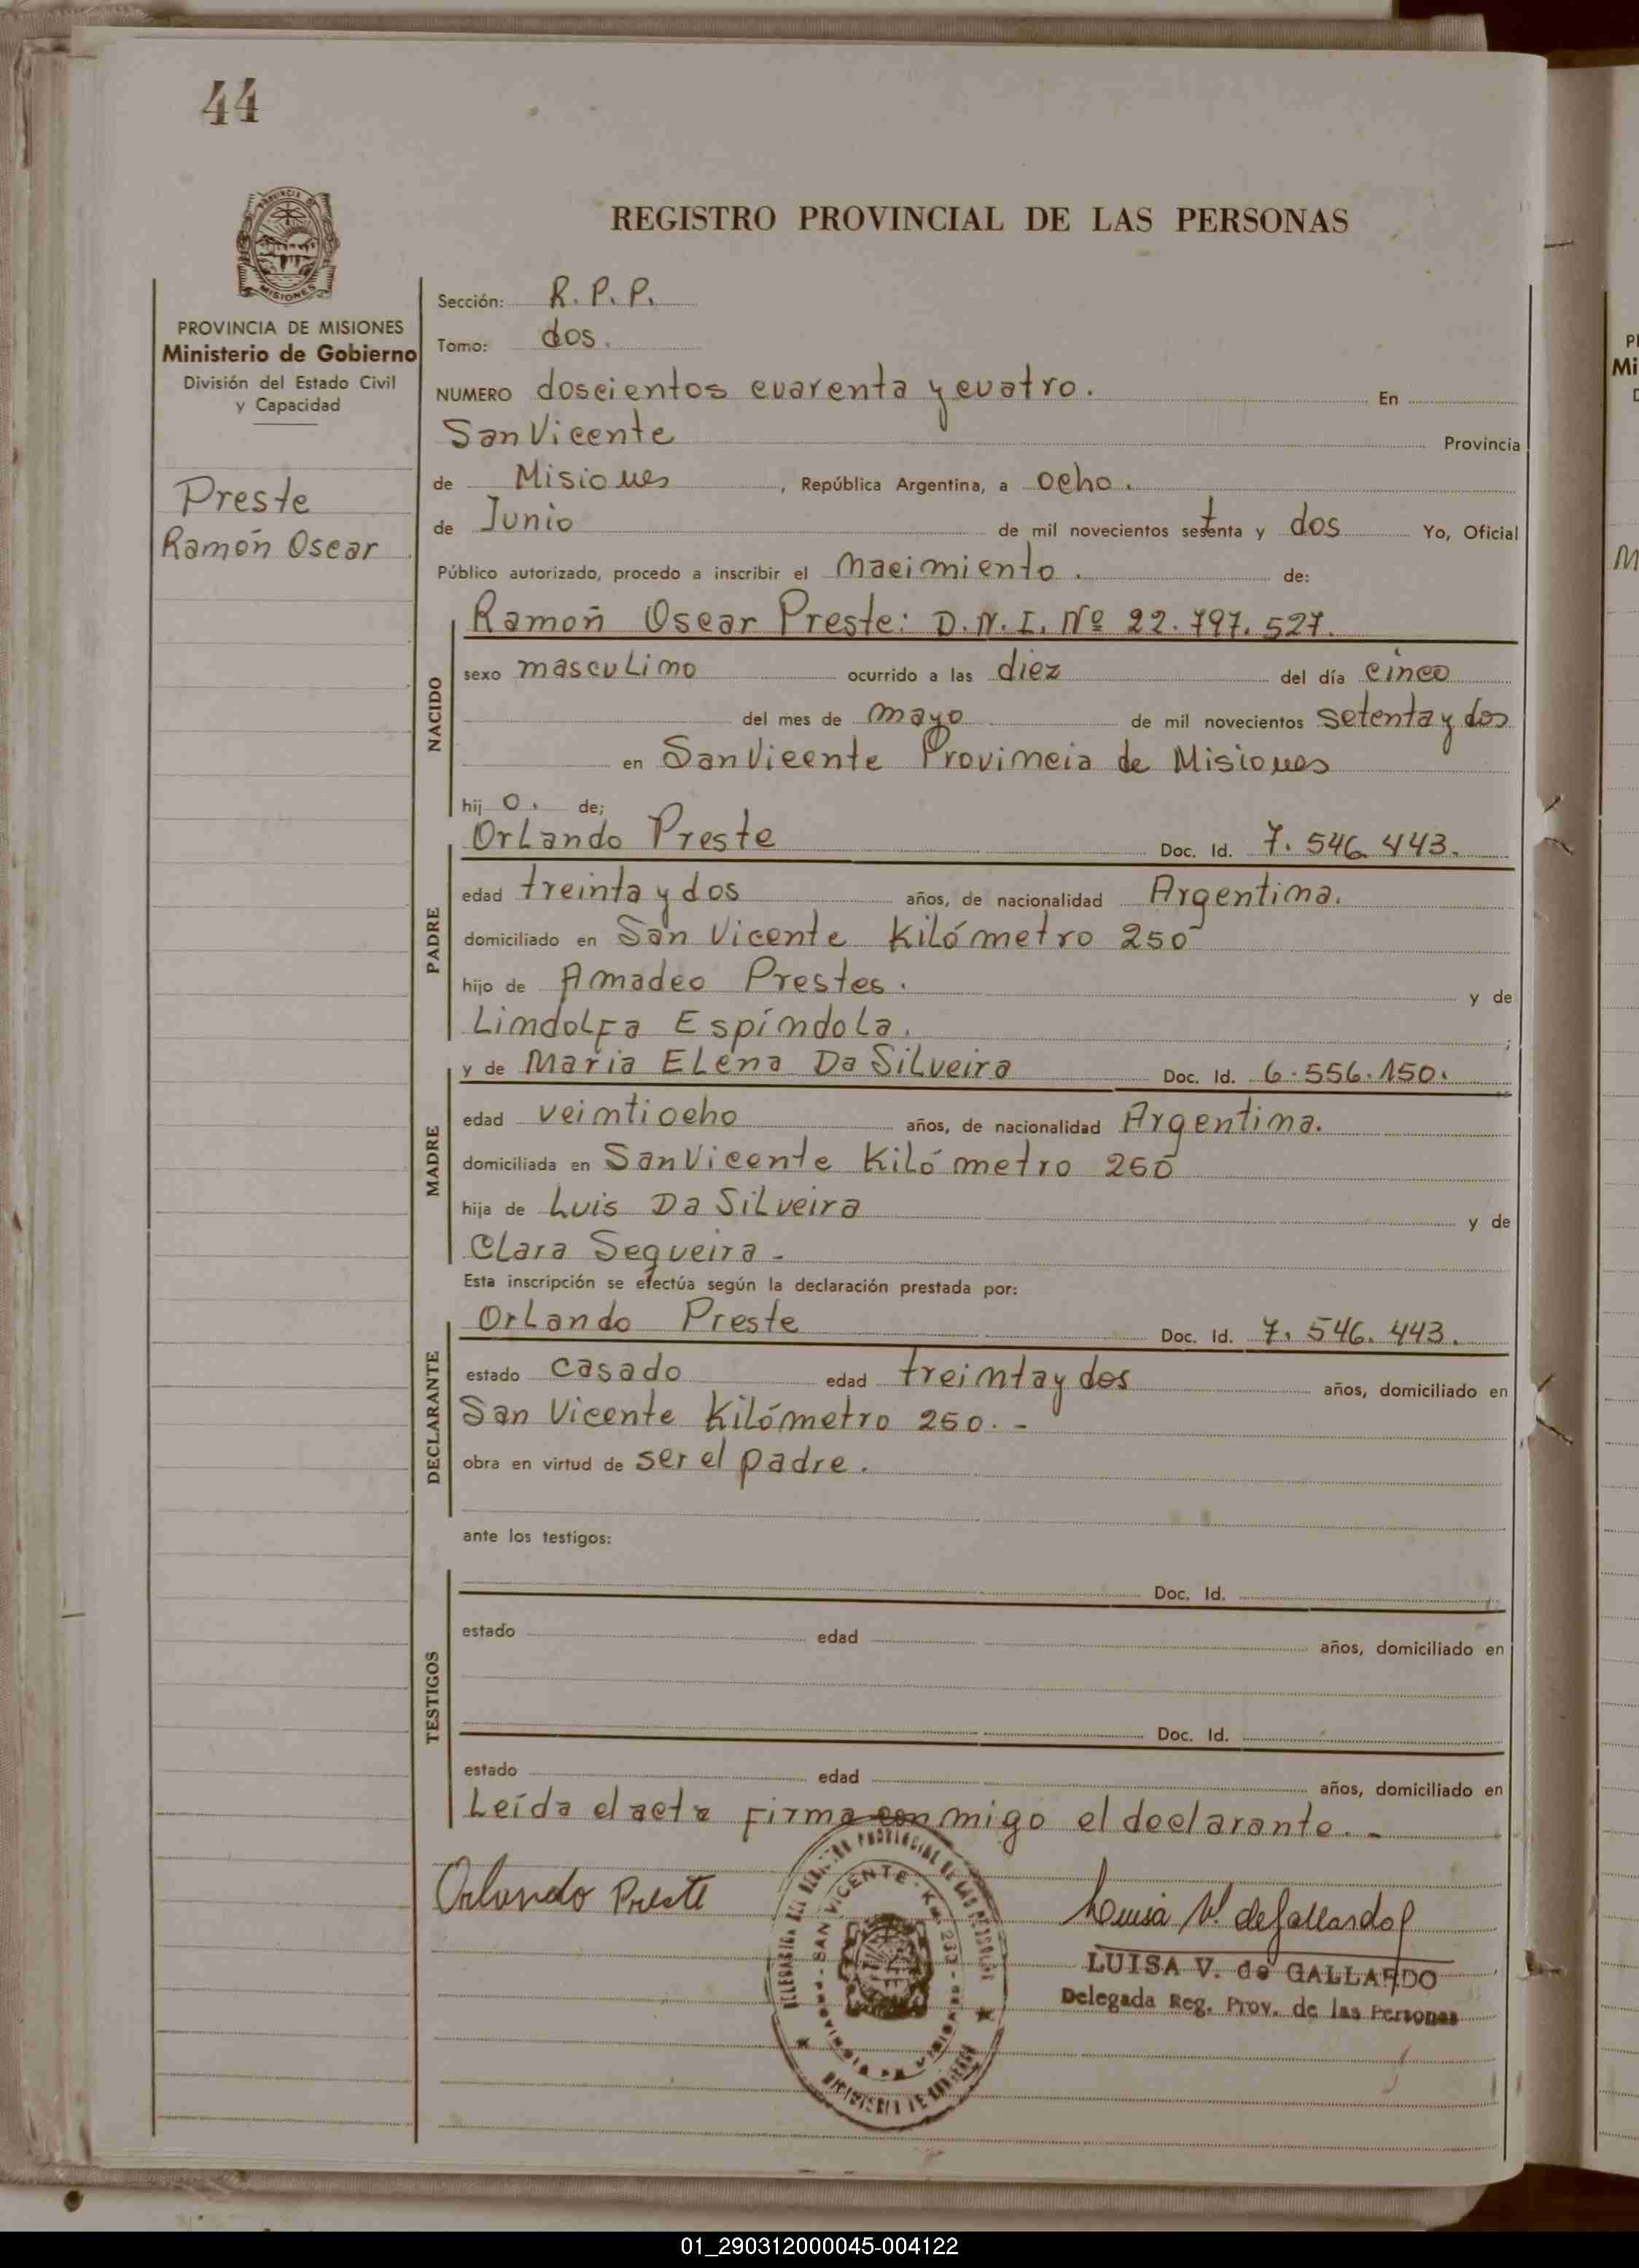 44
PROVINCIA DE
MISIONES
PROVINCIA DE MISIONES
Ministerio de Gobierno
División del Estado Civil
y Capacidad
Preste
Ramón Oscar
REGISTRO PROVINCIAL DE LAS PERSONAS
Sección: R. P. P.
Tomo: dos.
NUMERO doscientos cuarenta y cuatro. En
San Vicente Provincia
de Misiones, República Argentina, a ocho.
de Junio de mil novecientos setenta y dos Yo, Oficial
Público autorizado, procedo a inscribir el nacimiento. de:
NACIDO
Ramón Oscar Preste: D.N.I. Nº 22.797.527.
sexo masculino ocurrido a las diez del día cinco
del mes de mayo de mil novecientos setenta y dos
en San Vicente Provincia de Misiones
hij o. de;
PADRE
Orlando Preste Doc. Id. 7.546.443.
edad treinta y dos años, de nacionalidad Argentina.
domiciliado en San Vicente Kilómetro 250
hijo de Amadeo Prestes. y de
Lindolfa Espíndola.;
MADRE
y de María Elena Da Silveira Doc. Id. 6.556.150.
edad veintiocho años, de nacionalidad Argentina.
domiciliada en San Vicente Kilómetro 250
hija de Luis Da Silveira y de
Clara Segueira -
Esta inscripción se efectúa según la declaración prestada por:
DECLARANTE
Orlando Preste Doc. Id. 7.546.443.
estado casado edad treinta y dos años, domiciliado en
San Vicente Kilómetro 250. -
obra en virtud de ser el padre.
ante los testigos:
TESTIGOS
Doc. Id.
estado edad años, domiciliado en
Doc. Id.
estado edad años, domiciliado en
Leída el acta firma conmigo el declarante. -
Orlando Preste
DELEGACION DEL REGISTRO PROVINCIAL DE LAS PERSONAS
SAN VICENTE - Km. 233 -
PROVINCIA DE MISIONES
MINISTERIO DE GOBIERNO
Luisa V. de Gallardo
LUISA V. de GALLARDO
Delegada Reg. Prov. de las Personas
01_290312000045-004122